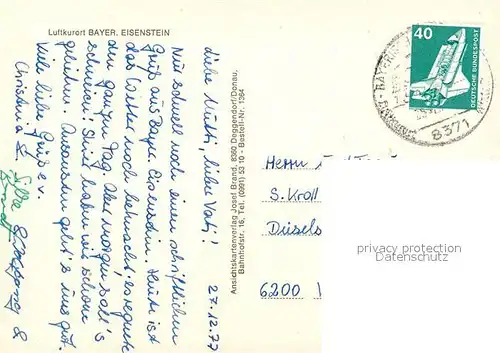 Luftkurort BAYER. EISENSTEIN
27.12.77
Liebe Mutti, lieber Vati!
Nur schnell noch einen schriftlichen
Gruß aus Bayer. Eisenstein. Heute ist
das Wetter noch beknackt, es regnete
den ganzen Tag. Aber morgen soll's
schneien! Skier haben wir schon
geliehen. Ansonsten geht's uns gut.
Viele liebe Grüße v.
Christina &
Silke
Wolfgang &
Ansichtskartenverlag Josef Brand, 8360 Deggendorf/Donau,
Bahnhofstr. 16, Tel. (0991) 53 10 - Bestell-Nr. 1364
40
DEUTSCHE BUNDESPOST
8371
Herrn
S. Kroll
6200
privacy protection
Datenschutz